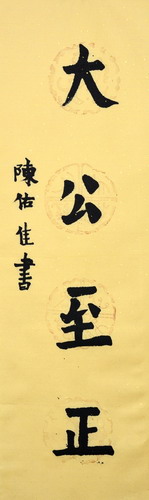 大公至正
陳佑隹書